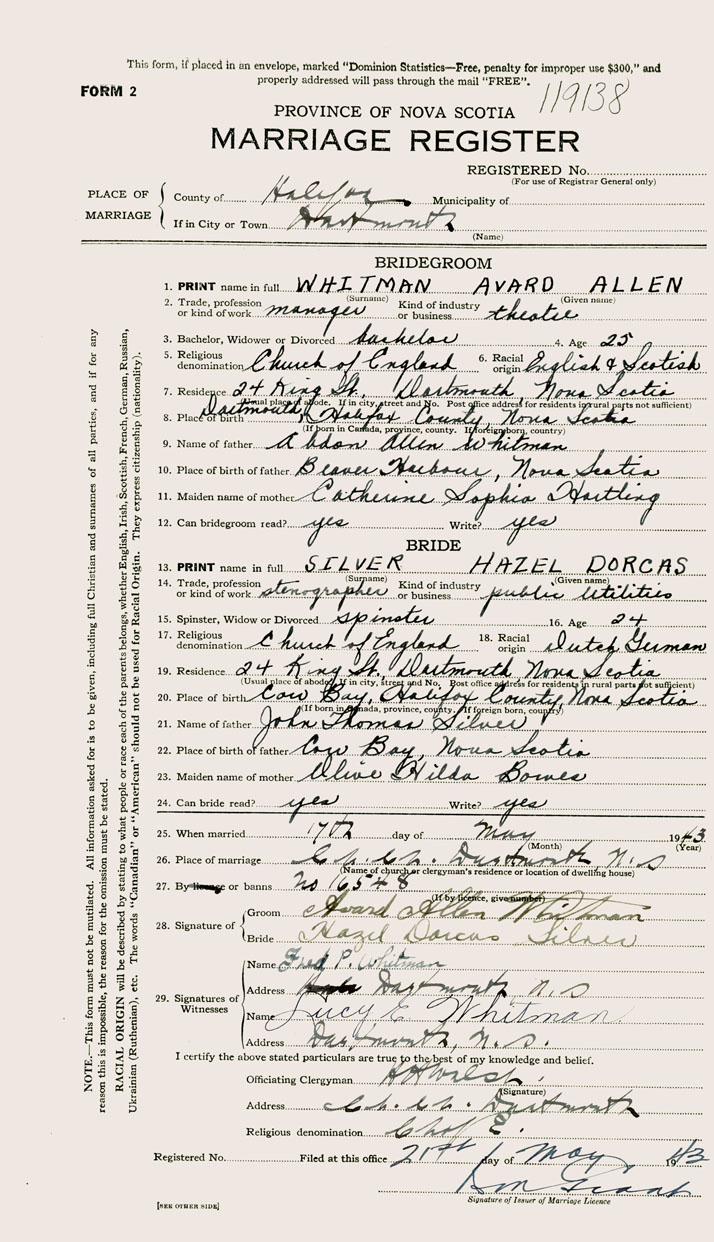 This form, if placed in an envelope, marked "Dominion Statistics—Free, penalty for improper use $300," and
properly addressed will pass through the mail "FREE".
FORM 2
119138
PROVINCE OF NOVA SCOTIA
MARRIAGE REGISTER
REGISTERED No.
(For use of Registrar General only)
PLACE OF MARRIAGE
County of Halifax Municipality of
If in City or Town Dartmouth
(Name)
BRIDEGROOM
1. PRINT name in full WHITMAN AVARD ALLEN
(Surname) (Given name)
2. Trade, profession or kind of work manager Kind of industry or business theatre
3. Bachelor, Widower or Divorced bachelor 4. Age 25
5. Religious denomination Church of England 6. Racial origin English & Scotish
7. Residence 24 King St. Dartmouth, Nova Scotia
(Usual place of abode. If in city, street and No. Post office address for residents in rural parts not sufficient)
8. Place of birth Dartmouth, Halifax County, Nova Scotia
(If born in Canada, province, county. If foreign born, country)
9. Name of father Abdon Allen Whitman
10. Place of birth of father Beaver Harbour, Nova Scotia
11. Maiden name of mother Catherine Sophia Hartling
12. Can bridegroom read? yes Write? yes
BRIDE
13. PRINT name in full SILVER HAZEL DORCAS
(Surname) (Given name)
14. Trade, profession or kind of work stenographer Kind of industry or business public utilities
15. Spinster, Widow or Divorced spinster 16. Age 24
17. Religious denomination Church of England 18. Racial origin Dutch German
19. Residence 24 King St, Dartmouth, Nova Scotia
(Usual place of abode. If in city, street and No. Post office address for residents in rural parts not sufficient)
20. Place of birth Cow Bay, Halifax County, Nova Scotia
(If born in Canada, province, county. If foreign born, country)
21. Name of father John Thomas Silver
22. Place of birth of father Cow Bay, Nova Scotia
23. Maiden name of mother Olive Hilda Bowes
24. Can bride read? yes Write? yes
25. When married 17th day of May 1943
(Month) (Year)
26. Place of marriage Ch. Ch. Dartmouth, N.S
(Name of church or clergyman's residence or location of dwelling house)
27. By license or banns no 16548
(If by licence, give number)
28. Signature of
Groom Avard Allen Whitman
Bride Hazel Dorcas Silver
29. Signatures of Witnesses
Name Fred P. Whitman
Address Dartmouth N.S
Name Lucy E Whitman
Address Dartmouth, N.S.
I certify the above stated particulars are true to the best of my knowledge and belief.
Officiating Clergyman
(Signature)
Address Ch. Ch. Dartmouth
Religious denomination Ch of E.
Registered No. Filed at this office 21st day of May 1943
Signature of Issuer of Marriage Licence
[SEE OTHER SIDE]
NOTE.—This form must not be mutilated. All information asked for is to be given, including full Christian and surnames of all parties, and if for any
reason this is impossible, the reason for the omission must be stated.
RACIAL ORIGIN will be described by stating to what people or race each of the parents belongs, whether English, Irish, Scottish, French, German, Russian,
Ukrainian (Ruthenian), etc. The words "Canadian" or "American" should not be used for Racial Origin. They express citizenship (nationality).